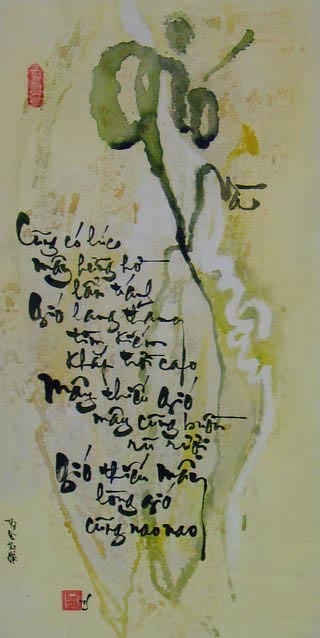 Gió
Cũng có lúc
mây hững hờ
lẩn tránh
Gió lang thang
tìm kiếm
khắp trời cao
Mây thiếu gió
mây cũng buồn
rũ rượi
Gió thiếu mây
lòng gió
cũng nao nao